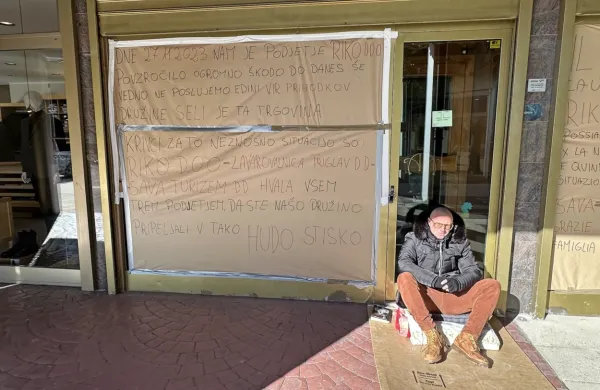 DNE 27.11.2023 NAM JE PODJETJE RIKO D.O.O.
POVZROČILO OGROMNO ŠKODO. DO DANES ŠE
VEDNO NE POSLUJEMO. EDINI VIR PRIHODKOV
DRUŽINE SELI JE TA TRGOVINA
KRIVCI ZA TO NEZNOSNO SITUACIJO SO:
RIKO D.O.O. - ZAVAROVALNICA TRIGLAV D.D-
SAVA TURIZEM DD HVALA VSEM
TREM PODJETJEM, DA STE NAŠO DRUŽINO
PRIPELJALI V TAKO HUDO STISKO
IL
CAU
RIK
POSSIA
X LA N
E QUIN
SITUAZIO
RIK
SAVA
GRAZIE
FAMIGLIA